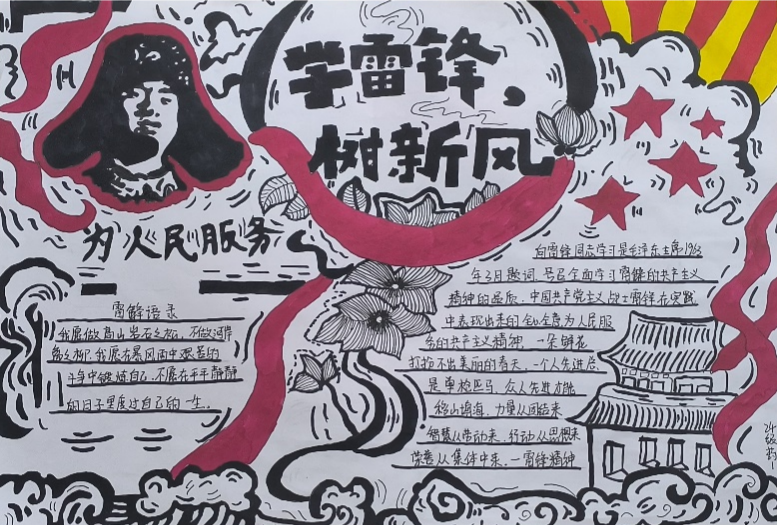 学雷锋，
树新风
为人民服务
雷锋语录
我愿做高山岩石之松，不做河岸
旁之柳，我愿在暴风雨中艰苦的
斗争中锻炼自己，不愿在平平静静
的日子里度过自己的一生。
向雷锋同志学习是毛泽东主席1963
年3月题词，号召全面学习雷锋的共产主义
精神的品质，中国共产党主义战士雷锋在实践
中表现出来的全心全意为人民服
务的共产主义精神 一朵鲜花
打扮不出美丽的春天，一个人先进总
是单枪匹马，众人先进才能
移山填海，力量从团结来
智慧从劳动来，行动从思想来
荣誉从集体中来，一雷锋精神